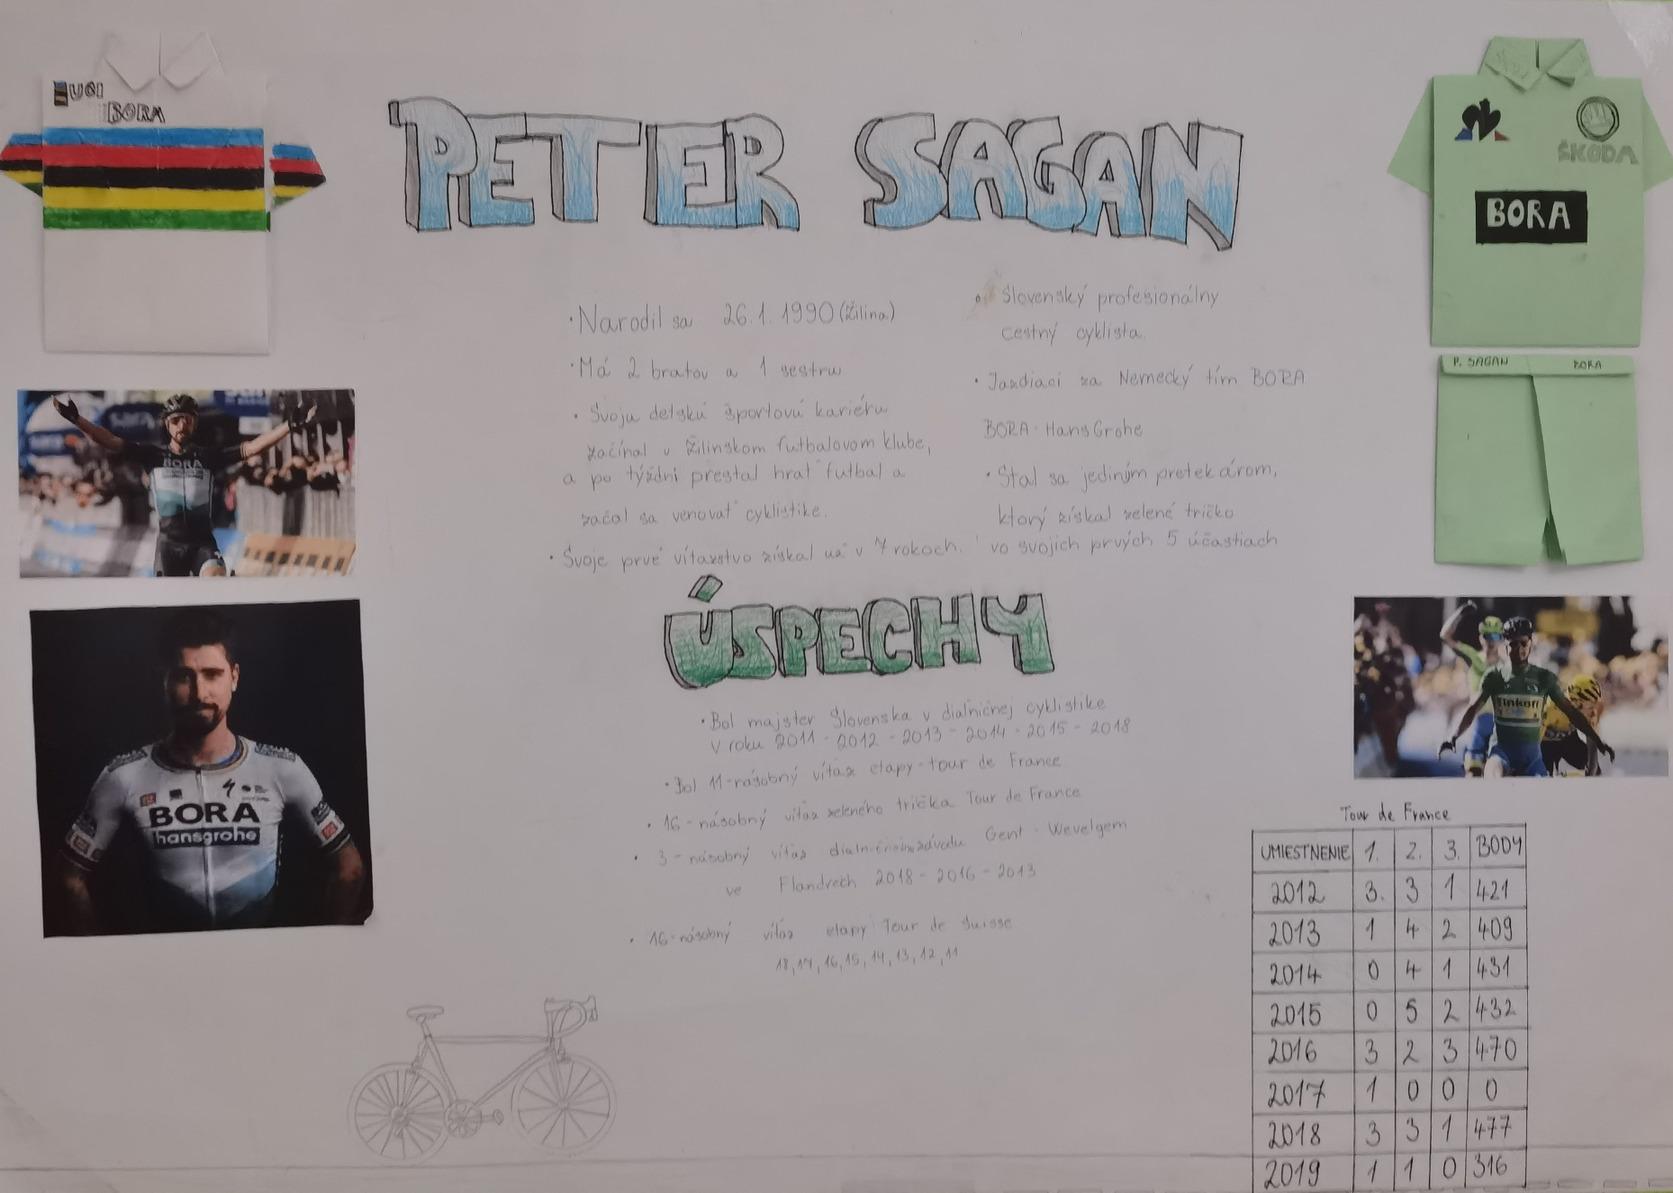 UCI
BORA
PETER SAGAN
ŠKODA
BORA
P. SAGAN BORA
• Narodil sa 26.1.1990 (Žilina)
• Má 2 bratov a 1 sestru
• Svoju detskú športovú kariéru
začínal v Žilinskom futbalovom klube,
a po týždni prestal hrať futbal a
začal sa venovať cyklistike.
• Svoje prvé víťazstvo získal už v 7 rokoch.
• Slovenský profesionálny
cestný cyklista.
• Jazdiaci za Nemecký tím BORA
BORA - HansGrohe
• Stal sa jediným pretekárom,
ktorý získal zelené tričko
vo svojich prvých 5 účastiach
BORA
ÚSPECHY
• Bol majster Slovenska v dialničnej cyklistike
v roku 2011 - 2012 - 2013 - 2014 - 2015 - 2018
• Bol 11-násobný víťaz etapy tour de France
• 16-násobný víťaz zeleného trička Tour de France
• 3-násobný víťaz Gent - Wevelgem
ve Flandrech 2018 - 2016 - 2013
• 16-násobný víťaz etapy Tour de Suisse
18, 17, 16, 15, 14, 13, 12, 11
BORA
hansgrohe
Tinkoff
Tour de France
UMIESTNENIE 1. 2. 3. BODY
2012 3. 3 1 421
2013 1 4 2 409
2014 0 4 1 431
2015 0 5 2 432
2016 3 2 3 470
2017 1 0 0 0
2018 3 3 1 477
2019 1 1 0 316